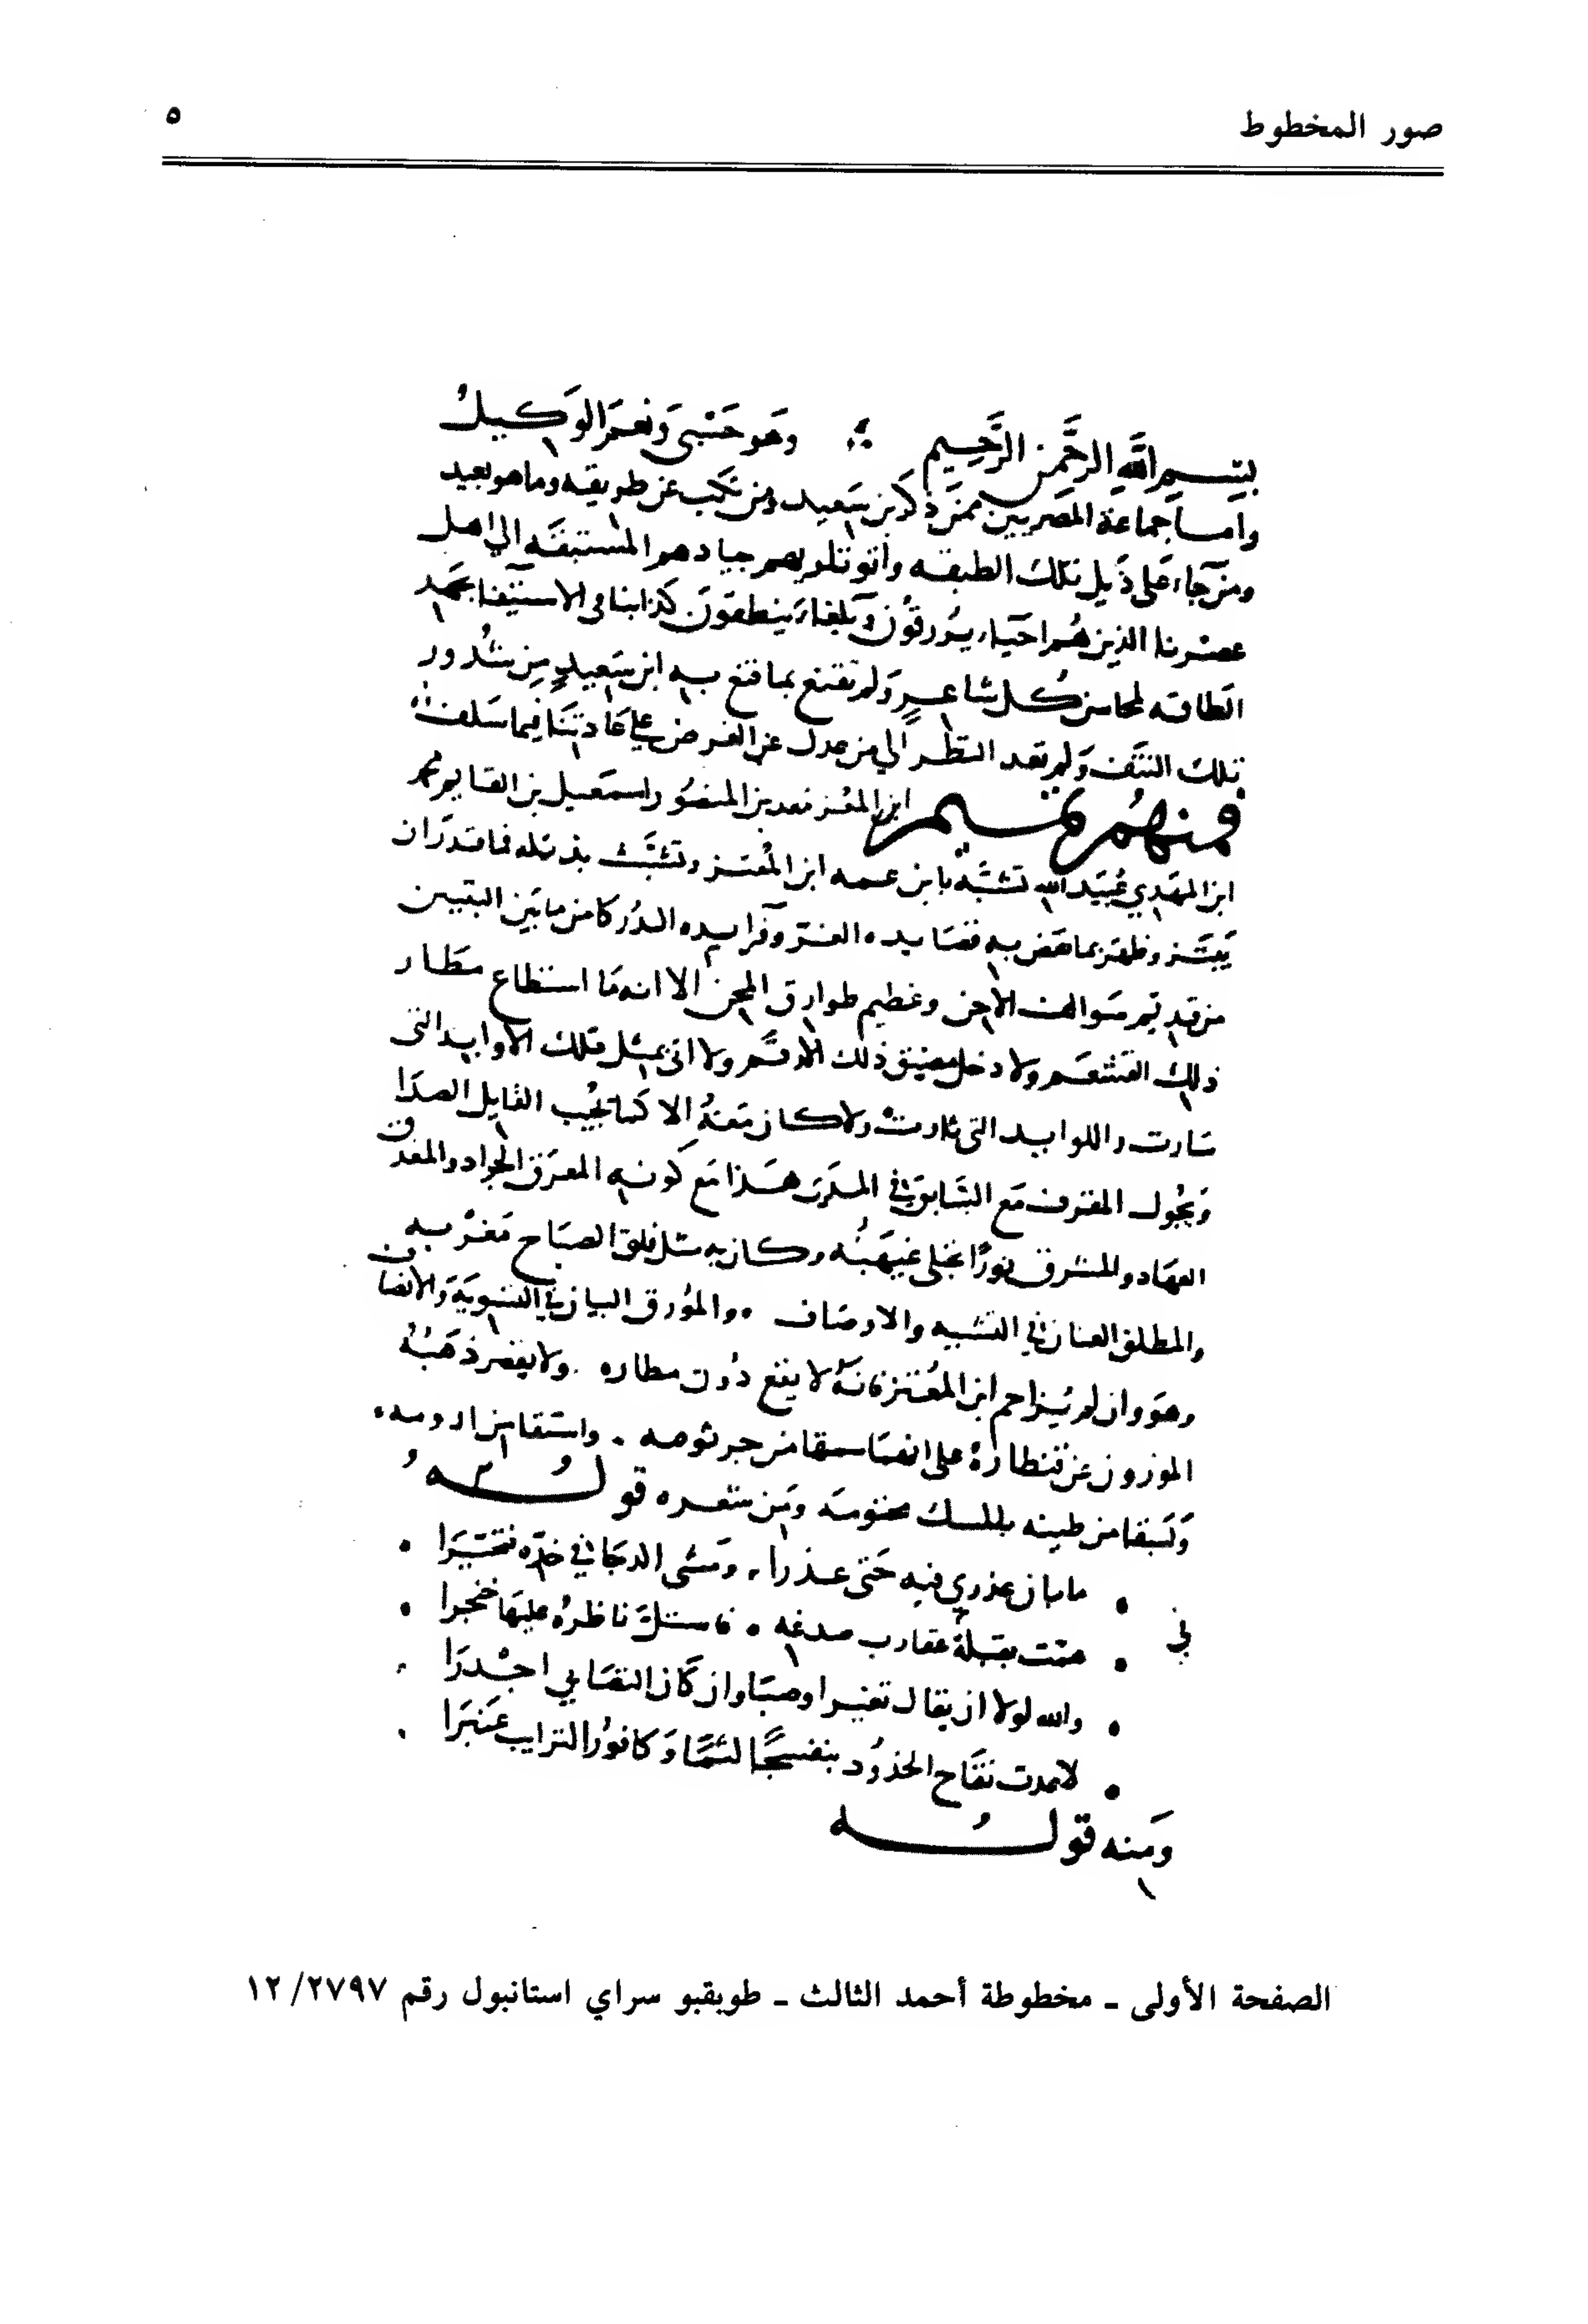 صور المخطوط
٥
بسم الله الرحمن الرحيم وهو حسبي ونعم الوكيل
واما جماعة المصريين ممن ذكر ابن سعيد ومن نكب عن طريقه وما هو ببعيد
ومن جاء على ذيل تلك الطبقه واتو تلو بهم جيادهم المستبقه الي اهل
عصرنا الذين هم احياء يرزقون وبلغاء ينطقون كدابنا في الاستيفا بجهد
الطاقه لمحاسن كل شاعر ولم نقنع بما قنع به ابن سعيد من شذور
تلك النتف ولم نعد النظر الي من عدل عن الغرض علي عادتنا فيما سلف
فمنهم تميم ابن المعز معد بن المنصور اسمعيل بن القايم محمد
ابن المهدي عبيد الله تشبه بابن عمه ابن المعتز وتشبث بذيله فما قدر ان
يبتز وظهر بما نهض به قصايده الغر وفرايده الدر كامن ما بين البيتين
من قديم سوالف الاحن وعظيم طوارق المحن الا انه ما استطاع مطار
ذلك القشعم ولا دخل مضيق ذلك الارقم ولا اتى بمثل تلك الاوابد التى
سارت واللوابد التى ثارت ولا كان معه الا كما يجيب القايل الصدا
ويجول المقرف مع السابق في المدى هذا مع كونه المعرق الجواد والمغدق
العهاد والمشرق نورا تجلى غيهبه وكان به مثل فلق الصباح مغربه
والمطلق العنان في التشبيه والاوصاف والمورق البيان في التسوية والانصاف
وهو وان لم يزاحم ابن المعتز فانه لا يقع دون مطاره ولا يقصر ذهبه
الموزون عن قنطاره على انهما سمقا من جرثومه واستقا من ارومه
ولبقا من طينه بالمسك مختومه ومن شعره قوله
ما بان عذري فيه حتى عذرا ومشى الدجا في خده فتحيرا
همت بقبلة عقارب صدغه فاستل ناظره عليها خنجرا
والله لولا ان يقال تغيرا وصبا وان كان التصابي اجدرا
لاعدت تفاح الخدود بنفسجا لثما وكافور الترايب عنبرا
ومنه قوله
الصفحة الأولى - مخطوطة أحمد الثالث - طوبقبو سراي استانبول رقم ٢٧٩٧/ ١٢